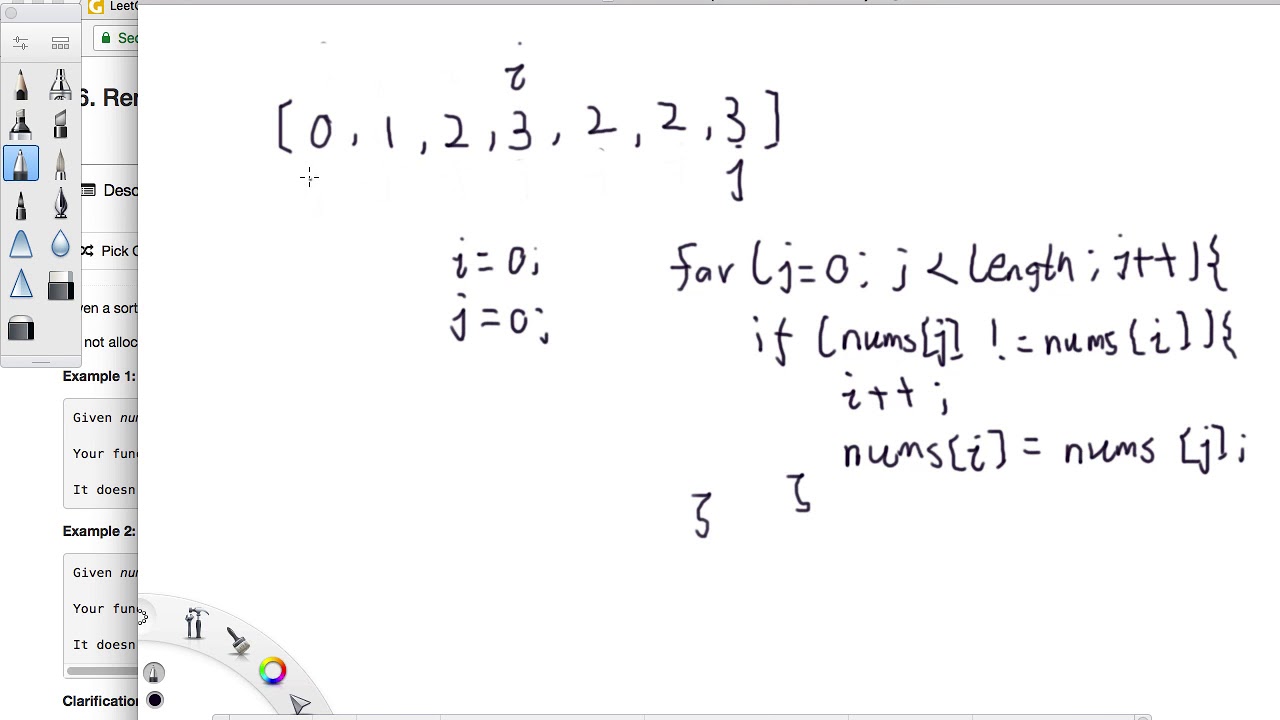 LeetC
Sec
6. Rem
Desc
Pick O
ven a sort
not alloc
Example 1:
Given num
Your func
It doesn
Example 2:
Given num
Your func
It doesn
Clarification
i
[ 0 , 1 , 2 , 3 , 2 , 2 , 3 ]
j
i = 0;
j = 0;
for (j=0; j < length; j++){
if (nums[j] != nums[i]){
i++;
nums[i] = nums [j];
}
}